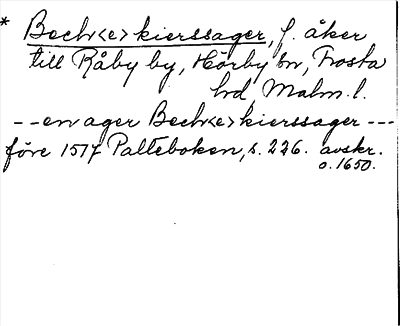 * Bech<e>kierssager, f. åker
till Råby by, Hörby sn, Frosta
hd, Malm. l.
-- en ager Bech<e>kierssager ---
före 1517 Palteboken, s. 226. avskr.
o. 1650.